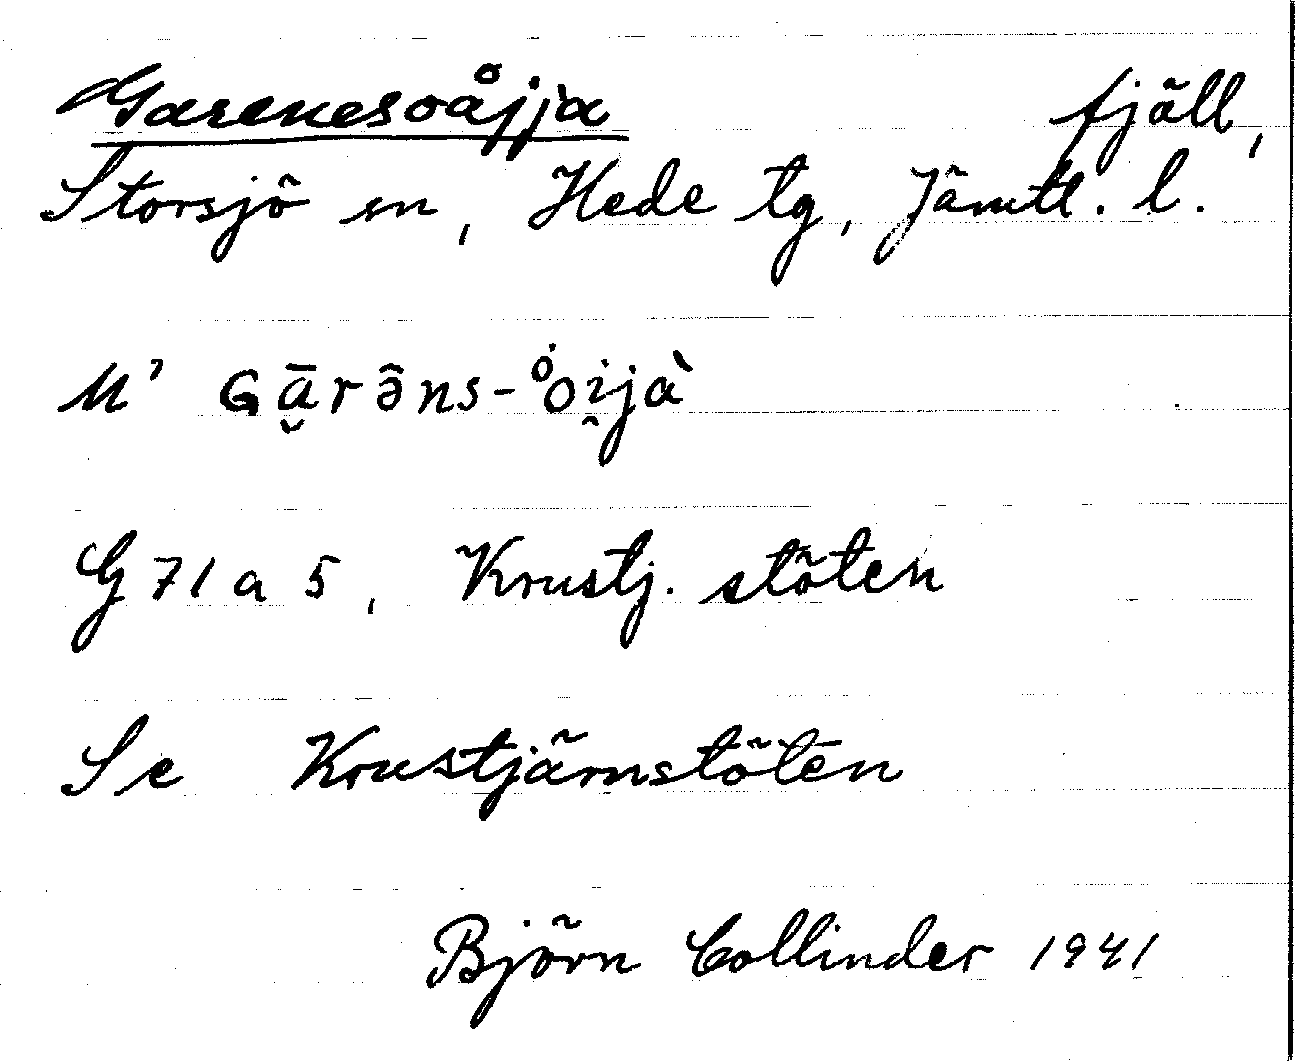 Garenesoåjja fjäll,
Storsjö sn, Hede tg, Jämtl. l.
M' Gā̮rə̂ns-o̊i̯jà
G 71 a 5, Krustj. stöten
Se Krustjärnstöten
Björn Collinder 1941